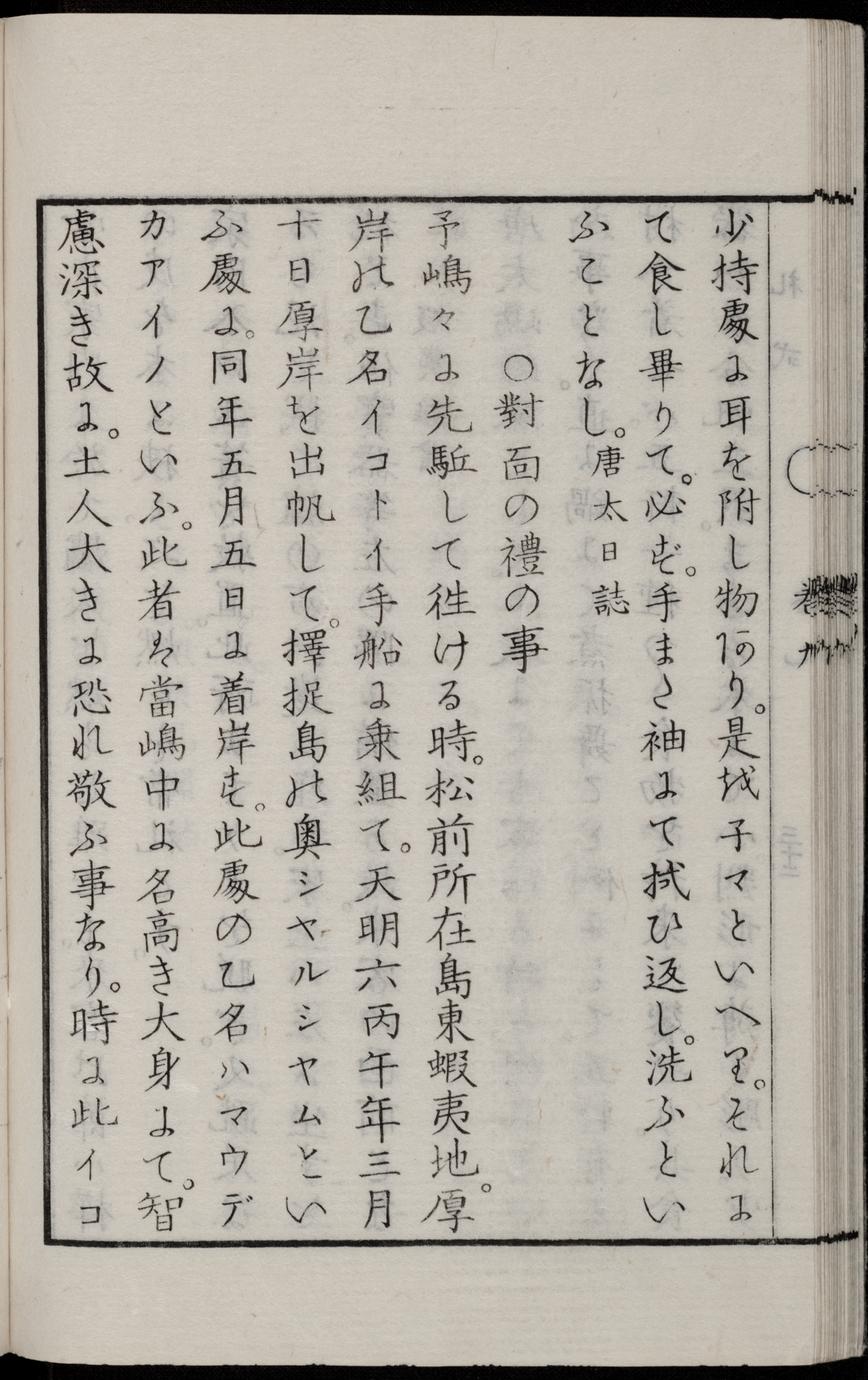 少持處に耳を附し物あり。是をチマといへり。それに
て食し畢りて。必ず。手また袖にて拭ひ返し。洗ふとい
ふことなし。唐太日誌
○對面の禮の事
予嶋々に先駈して徃ける時。松前所在島東蝦夷地。厚
岸の乙名イコトイ手船に乗組て。天明六丙午年三月
十日厚岸を出帆して。擇捉島の奥シヤルシヤムとい
ふ處に。同年五月五日に着岸す。此處の乙名ハマウデ
カアイノといふ。此者は當嶋中に名高き大身にて。智
慮深き故に。土人大きに恐れ敬ふ事なり。時に此イコ